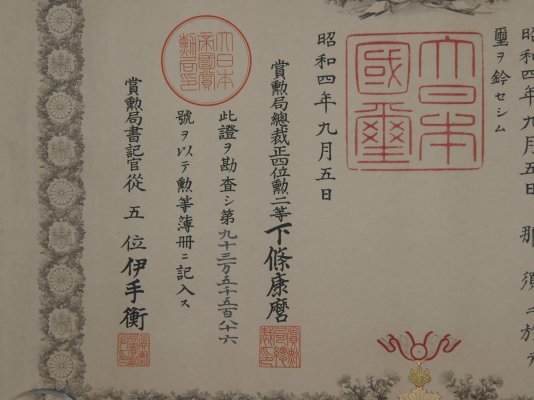 昭和四年九月五日那須ニ於テ
璽ヲ鈐セシム
大日本國璽
昭和四年九月五日
賞勲局總裁正四位勲二等下條康麿
此證ヲ勘査シ第九十三万五千五百八十六
號ヲ以テ勲等簿冊ニ記入ス
大日本帝國賞勲局印
賞勲局書記官從五位伊手衡